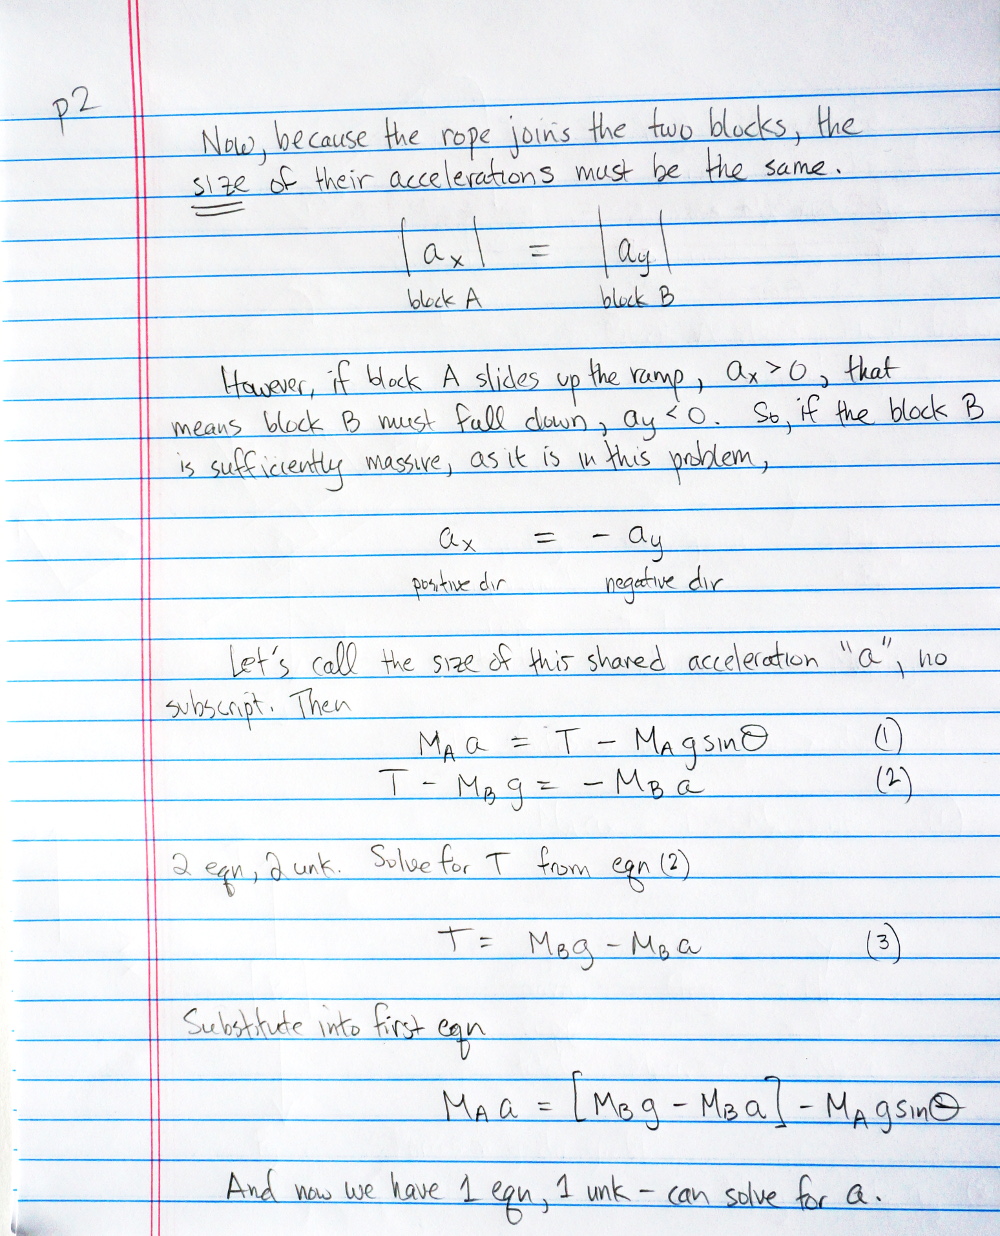 p2
Now, because the rope joins the two blocks, the
size of their accelerations must be the same.
|ax| = |ay|
block A block B
However, if block A slides up the ramp, ax > 0, that
means block B must fall down, ay < 0. So, if the block B
is sufficiently massive, as it is in this problem,
ax = - ay
positive dir negative dir
Let's call the size of this shared acceleration "a", no
subscript. Then
MA a = T - MA g sinθ (1)
T - MB g = - MB a (2)
2 eqn, 2 unk. Solve for T from eqn (2)
T = MB g - MB a (3)
Substitute into first eqn
MA a = [MB g - MB a] - MA g sinθ
And now we have 1 eqn, 1 unk - can solve for a.